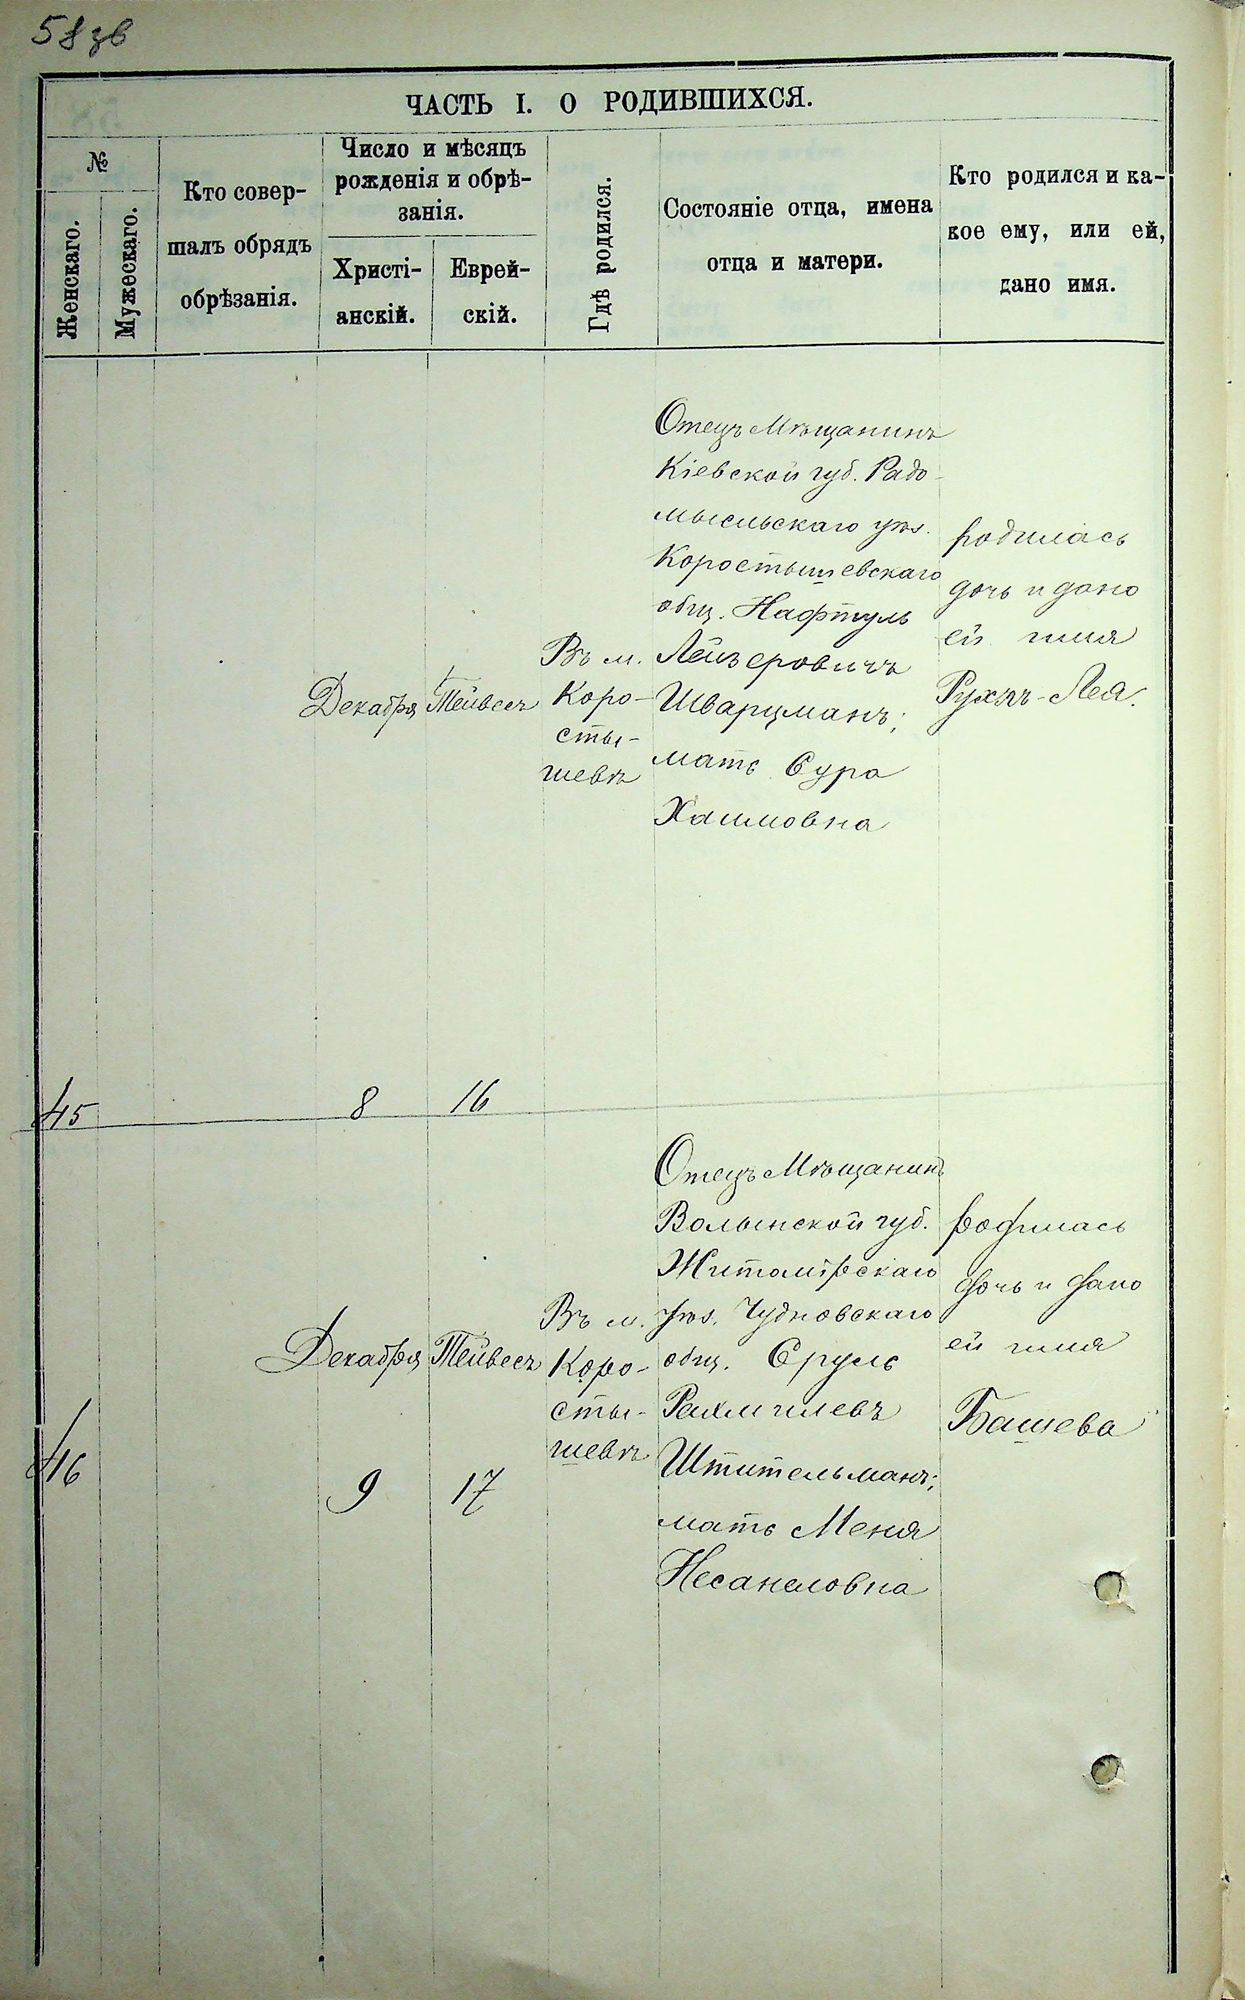 58 зв
ЧАСТЬ I. О РОДИВШИХСЯ.
№
Женскаго.
Мужескаго.
Кто совер-
шалъ обрядъ
обрѣзанія.
Число и мѣсяцъ
рожденія и обрѣ-
занія.
Христі-
анскій.
Еврей-
скій.
Гдѣ родился.
Состояніе отца, имена
отца и матери.
Кто родился и ка-
кое ему, или ей,
дано имя.
45
Декабря
8
Тейвесъ
16
Въ м.
Коро-
сты-
шевѣ
Отецъ Мѣщанинъ
Кіевской губ. Радо-
мысльскаго уѣз.
Коростышевскаго
общ. Нафтуль
Лейзеровичъ
Шварцманъ;
мать Сура
Хаимовна
родилась
дочь и дано
ей имя
Рухль-Лея.
46
Декабря
9
Тейвесъ
17
Въ м.
Коро-
сты-
шевѣ
Отецъ Мѣщанинъ
Волынской губ.
Житомірскаго
уѣз. Чудновскаго
общ. Сруль
Рахмилевъ
Штительманъ;
мать Меня
Несанеловна
родилась
дочь и дано
ей имя
Башева